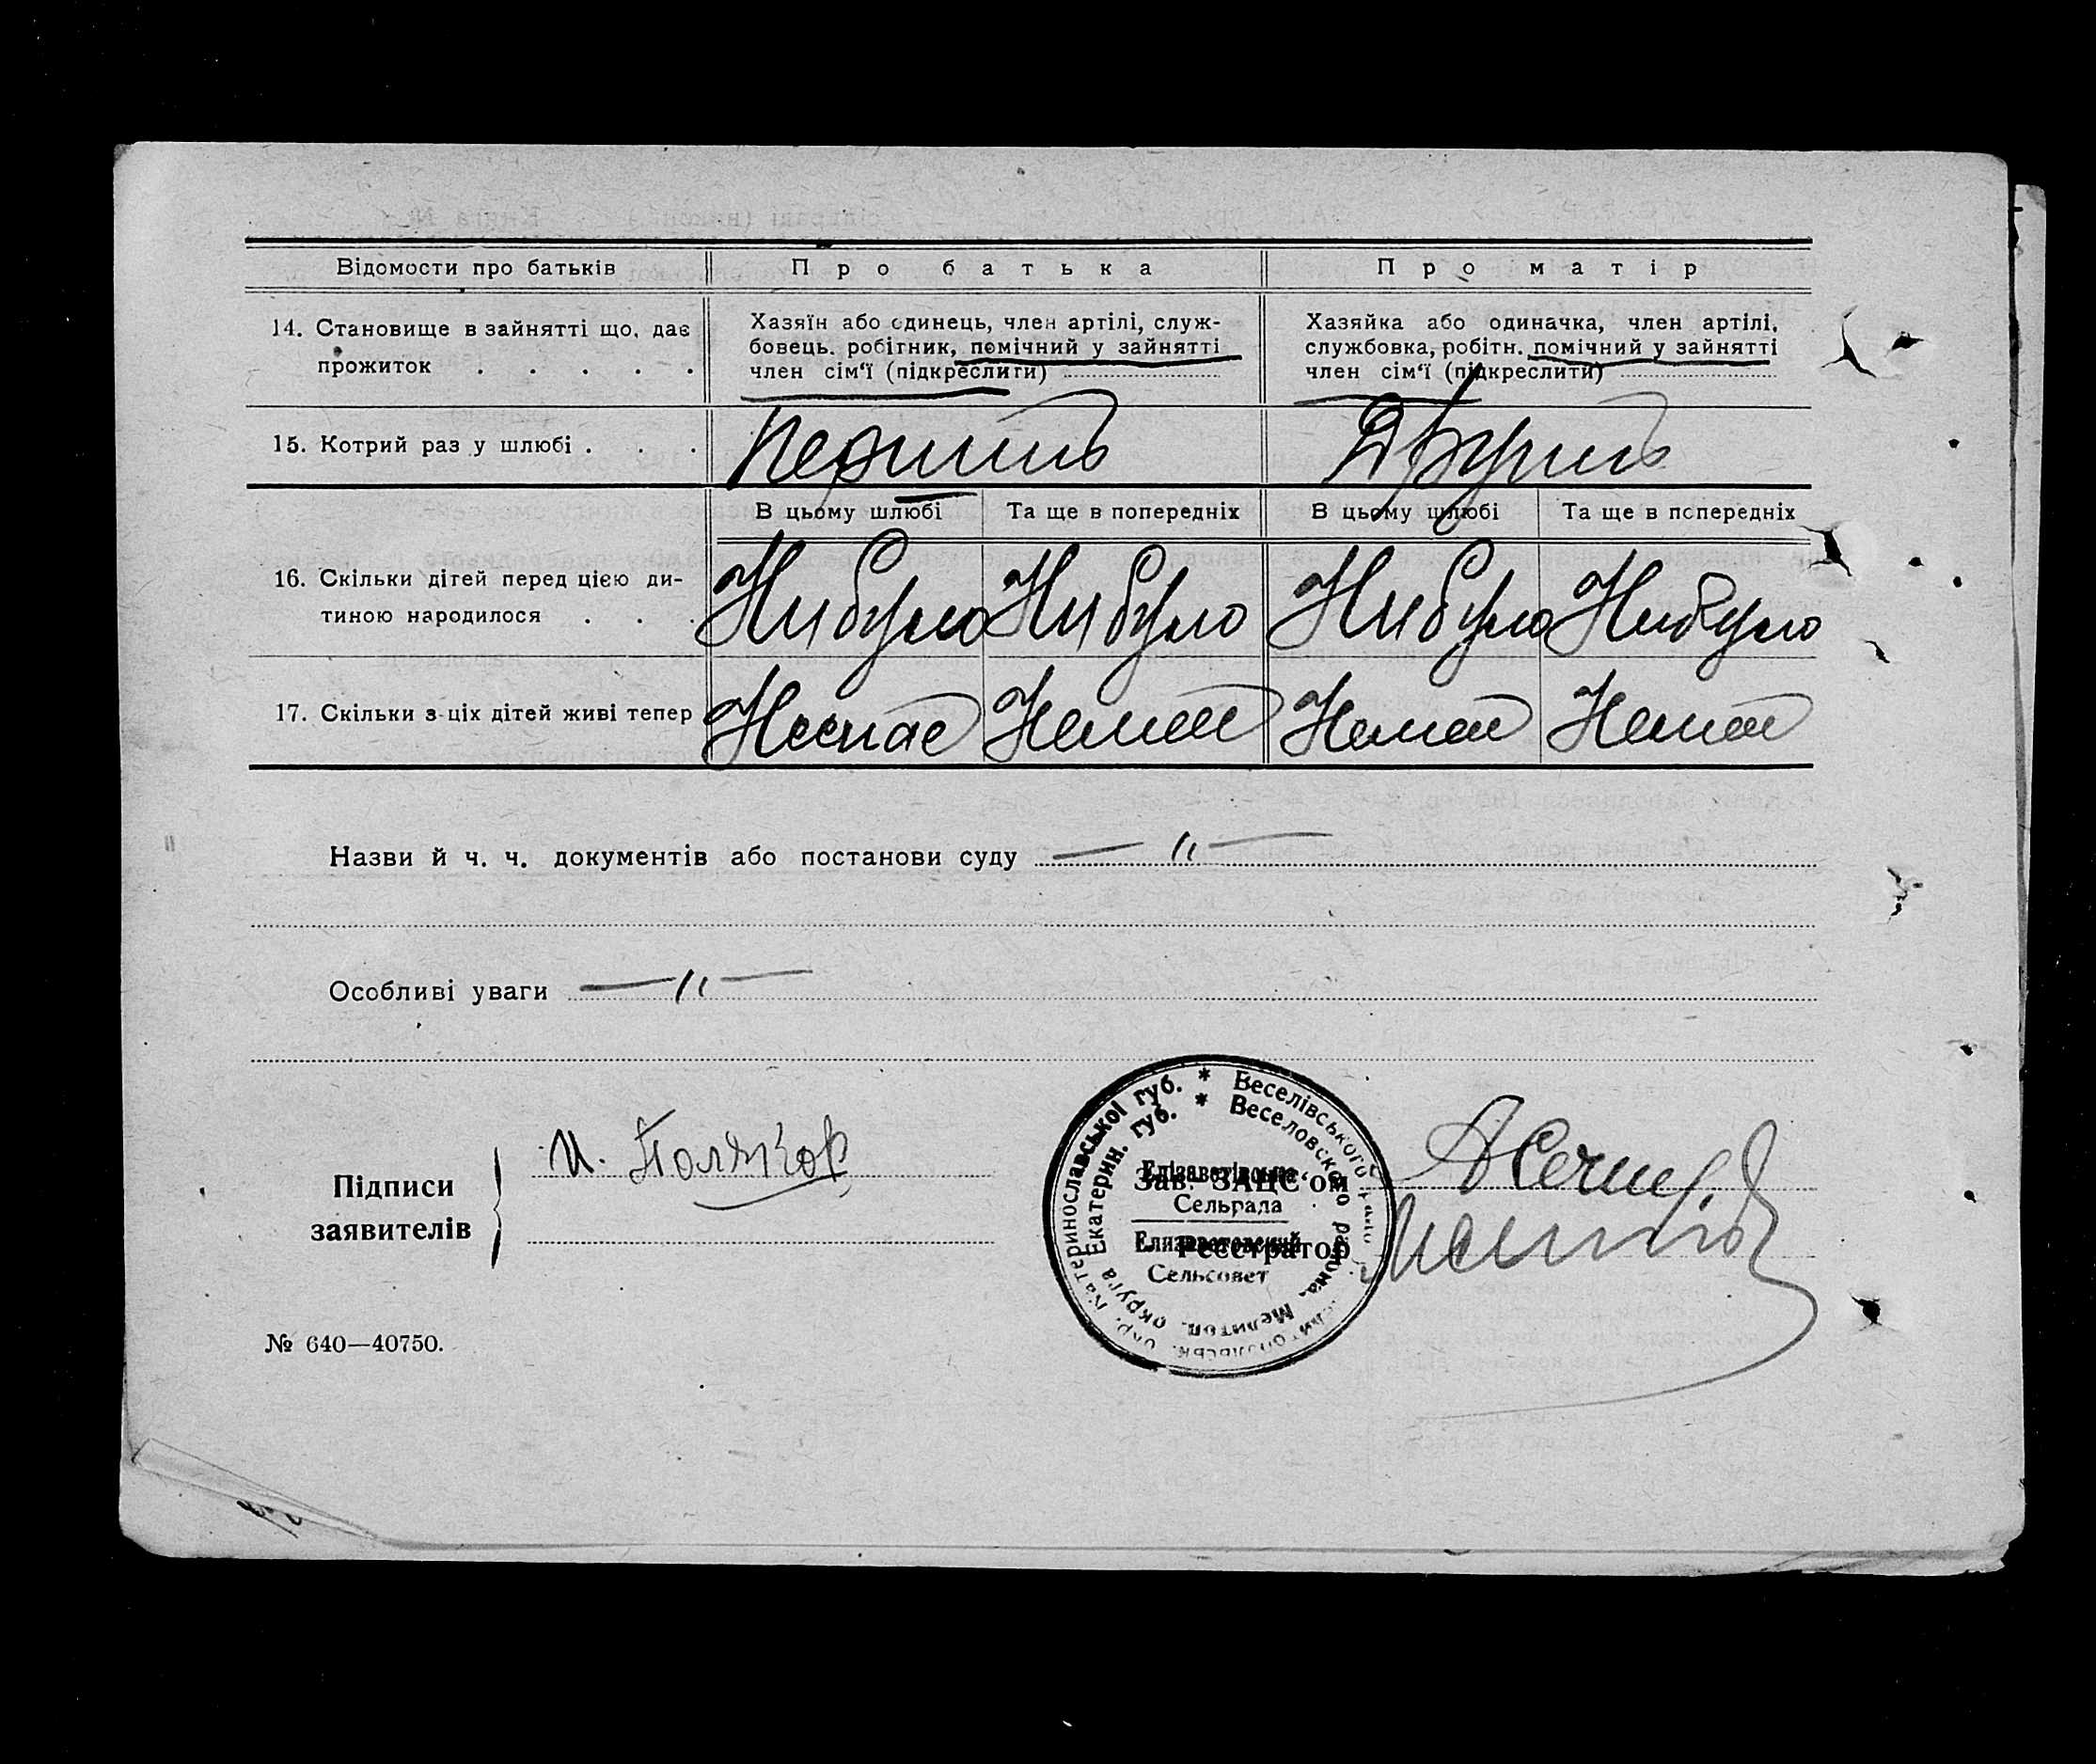 Відомости про батьків
Про батька
Про матір
14. Становище в зайнятті що, дає
прожиток . . . . .
Хазяїн або єдинець, член артілі, служ-
бовець. робігник, помічний у зайнятті
член сім'ї (підкреслити)
Хазяйка або одиначка, член артілі,
службовка, робітн. помічний у зайнятті
член сім'ї (підкреслити)
15. Котрий раз у шлюбі . . .
В цьому шлюбі
Та ще в попередніх
В цьому шлюбі
Та ще в попередніх
16. Скільки дітей перед цією ди-
тиною народилося . . .
Нибуло Нибуло Нибуло Нибуло
17. Скільки з ціх дітей живі тепер
Немае Немае Немае Немае
Назви й ч. ч. документів або постанови суду — " —
Особливі уваги — " —
Підписи
заявителів
И. Поляков
Зав. ЗАЦС'ом
Реєстратор
* Веселівського
Катеринославської губ.
* Веселовского района. Мелитоп. округа Екатерин. губ.
Єлізаветівська
Сельрада
Елизаветовский
Сельсовет
№ 640—40750.